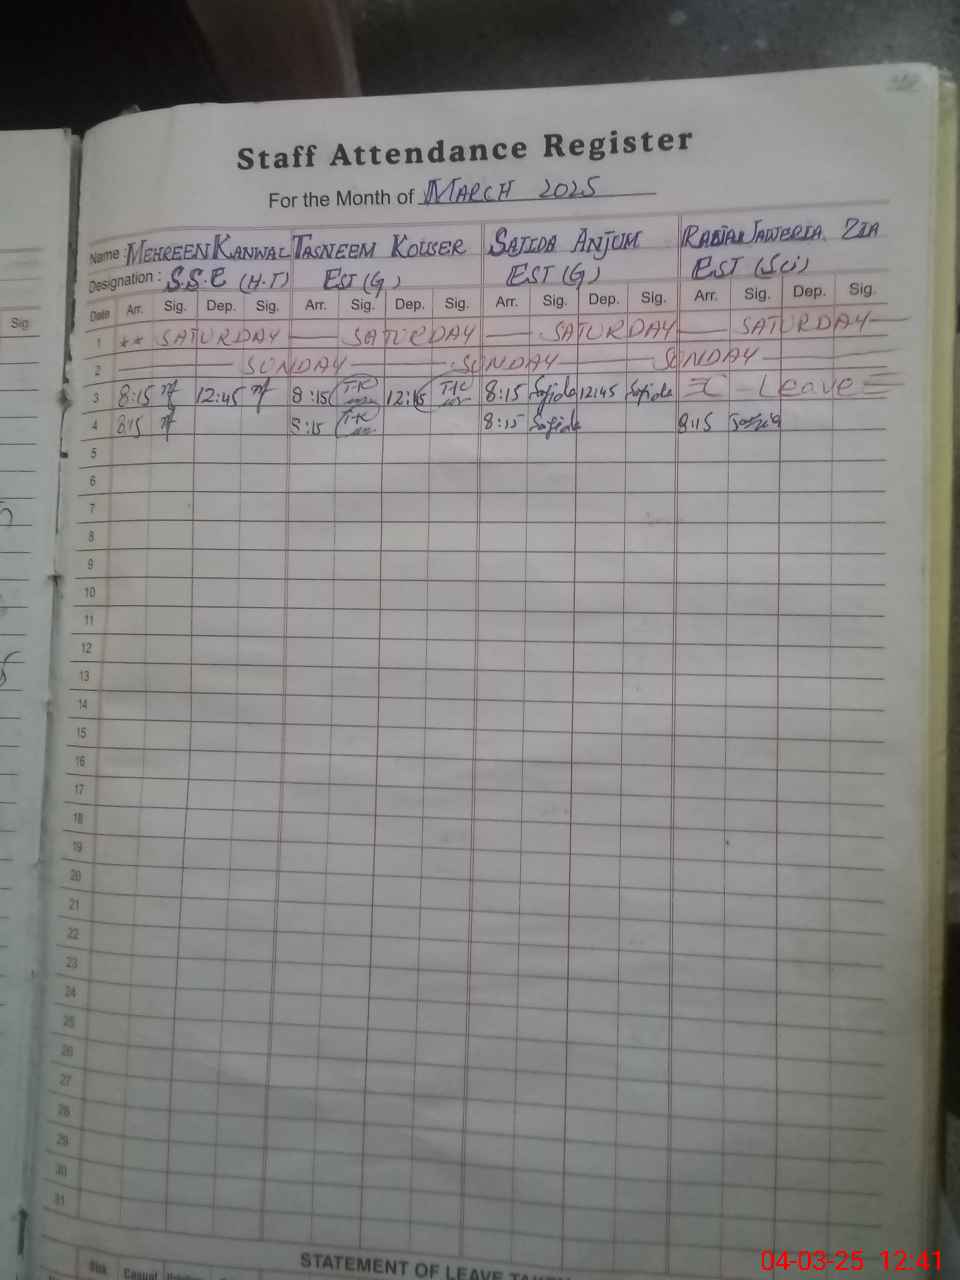 Staff Attendance Register
For the Month of MARCH 2025
Name : MEHREEN KANWAL TASNEEM KOUSER SAJIDA ANJUM RABIAH JAWERIA ZIA
Designation : S.S.E (H.T) EST (G) EST (G) EST (Sci)
Sig
Date Arr. Sig. Dep. Sig. Arr. Sig. Dep. Sig. Arr. Sig. Dep. Sig. Arr. Sig. Dep. Sig.
1 ** SATURDAY SATURDAY SATURDAY SATURDAY
2 SUNDAY SUNDAY SUNDAY
3 8:15 12:45 8:15 T-K 12:45 T-K 8:15 Sajida 12:45 Sajida Leave
4 8:15 8:15 T-K 8:15 Sajida 8:15
5
6
7
8
9
10
11
12
13
14
15
16
17
18
19
20
21
22
23
24
25
26
27
28
29
30
31
STATEMENT OF LEAVE TAKEN
Casual
04-03-25 12:41